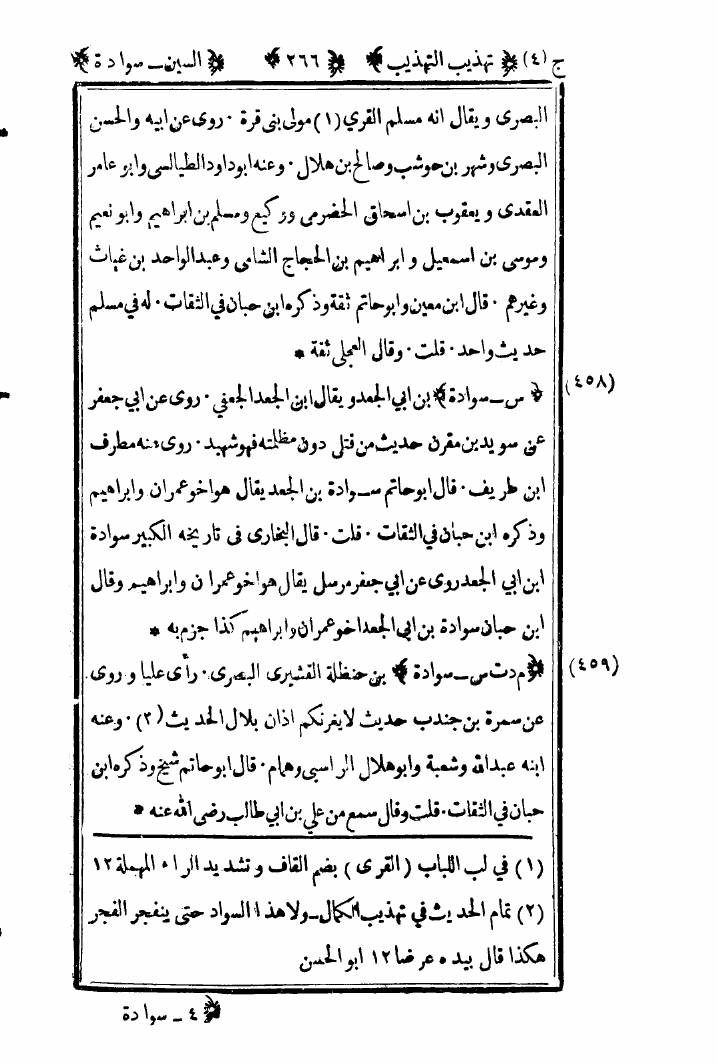 ج (٤) ﴿ تهذيب التهذيب ﴾ ﴿ ٢٦٦ ﴾ ﴿ السين ـ سوادة ﴾
البصرى ويقال انه مسلم القري (١) مولى بنى قرة ٠ روى عن ابيه والحسن
البصرى وشهر بن حوشب وصالح بن هلال ٠ وعنه ابوداود الطيالسى وابو عامر
العقدى ويعقوب بن اسحاق الحضرمى ووكيع ومسلم بن ابراهيم وابو نعيم
وموسى بن اسمعيل وابراهيم بن الحجاج الشامى وعبدالواحد بن غياث
وغيرهم ٠ قال ابن معين وابوحاتم ثقة وذكره ابن حبان في الثقات ٠ له في مسلم
حديث واحد ٠ قلت ٠ وقال العجلى ثقة *
(٤٥٨) ﴿ س ـ سوادة ﴾ بن ابي الجعد ويقال ابن الجعد الجعفي ٠ روى عن ابي جعفر
عن سويد بن مقرن حديث من قتل دون مظلمته فهو شهيد ٠ روى عنه مطرف
ابن طريف ٠ قال ابوحاتم سوادة بن الجعد يقال هو اخو عمران وابراهيم
وذكره ابن حبان في الثقات ٠ قلت ٠ قال البخارى فى تاريخه الكبير سوادة
ابن ابي الجعد روى عن ابي جعفر مرسل يقال هو اخو عمران وابراهيم وقال
ابن حبان سوادة بن ابى الجعد اخو عمران وابراهيم كذا جزم به *
(٤٥٩) ﴿ م د ت س ـ سوادة ﴾ بن حنظلة القشيرى البصرى ٠ رأى عليا وروى
عن سمرة بن جندب حديث لا يغرنكم اذان بلال الحديث (٢) ٠ وعنه
ابنه عبدالله وشعبة وابوهلال الراسبى وهمام ٠ قال ابوحاتم شيخ وذكره ابن
حبان في الثقات ٠ قلت وقال سمع من علي بن ابي طالب رضى الله عنه *
(١) في لب اللباب (القرى) بضم القاف وتشديد الراء المهملة ١٢
(٢) تمام الحديث في تهذيب الكمال ـ ولا هذا السواد حتى ينفجر الفجر
هكذا قال بيده عرضا ١٢ ابو الحسن
﴿ ٤ ـ سوادة